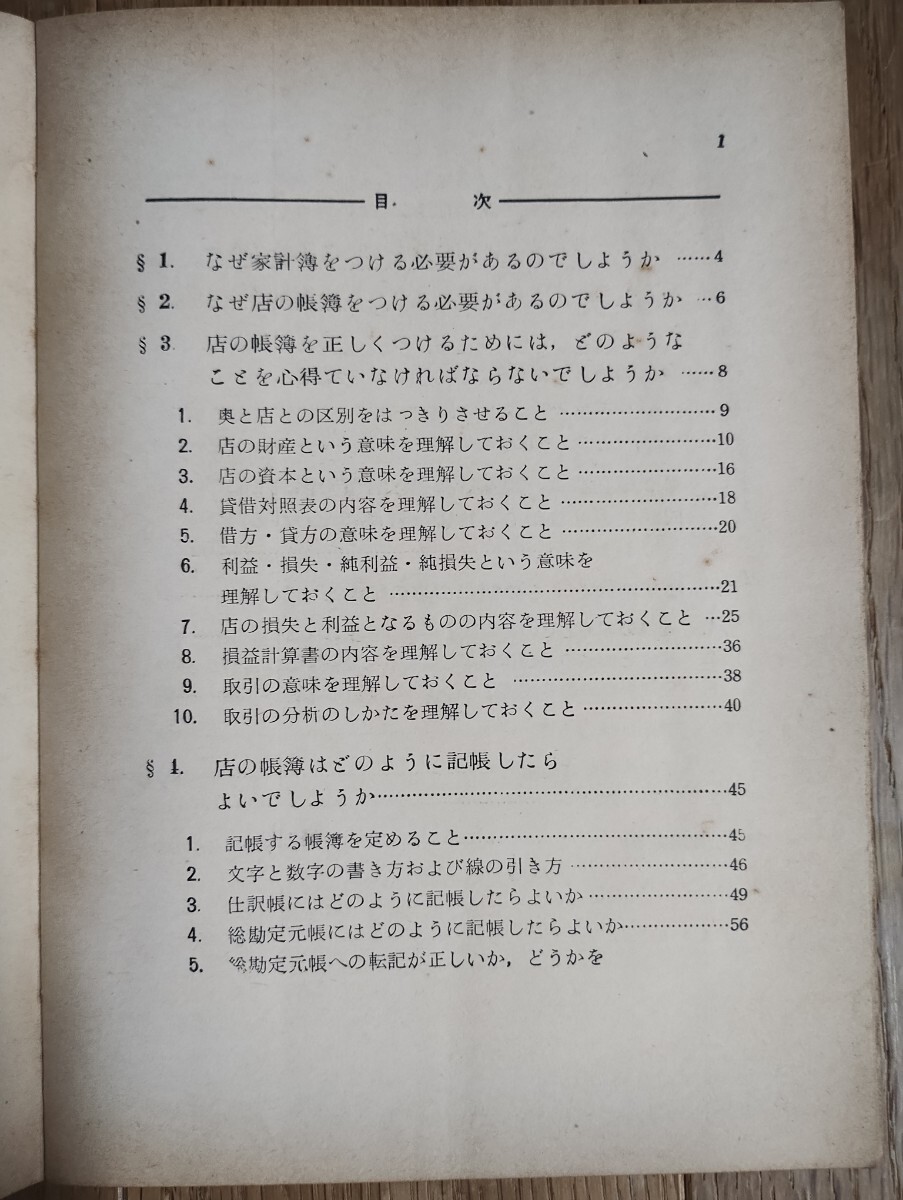 1
目 次
§ 1. なぜ家計簿をつける必要があるのでしようか ……4
§ 2. なぜ店の帳簿をつける必要があるのでしようか …6
§ 3 店の帳簿を正しくつけるためには，どのような
ことを心得ていなければならないでしようか ……8
1. 奥と店との区別をはっきりさせること ……………………9
2. 店の財産という意味を理解しておくこと…………………10
3. 店の資本という意味を理解しておくこと…………………16
4. 貸借対照表の内容を理解しておくこと……………………18
5. 借方・貸方の意味を理解しておくこと……………………20
6. 利益・損失・純利益・純損失という意味を
理解しておくこと ……………………………………………21
7. 店の損失と利益となるものの内容を理解しておくこと …25
8. 損益計算書の内容を理解しておくこと ……………………36
9. 取引の意味を理解しておくこと ……………………………38
10. 取引の分析のしかたを理解しておくこと…………………40
§ 4. 店の帳簿はどのように記帳したら
よいでしようか…………………………………………………45
1. 記帳する帳簿を定めること…………………………………45
2. 文字と数字の書き方および線の引き方 ……………………46
3. 仕訳帳にはどのように記帳したらよいか …………………49
4. 総勘定元帳にはどのように記帳したらよいか……………56
5. 総勘定元帳への転記が正しいか，どうかを